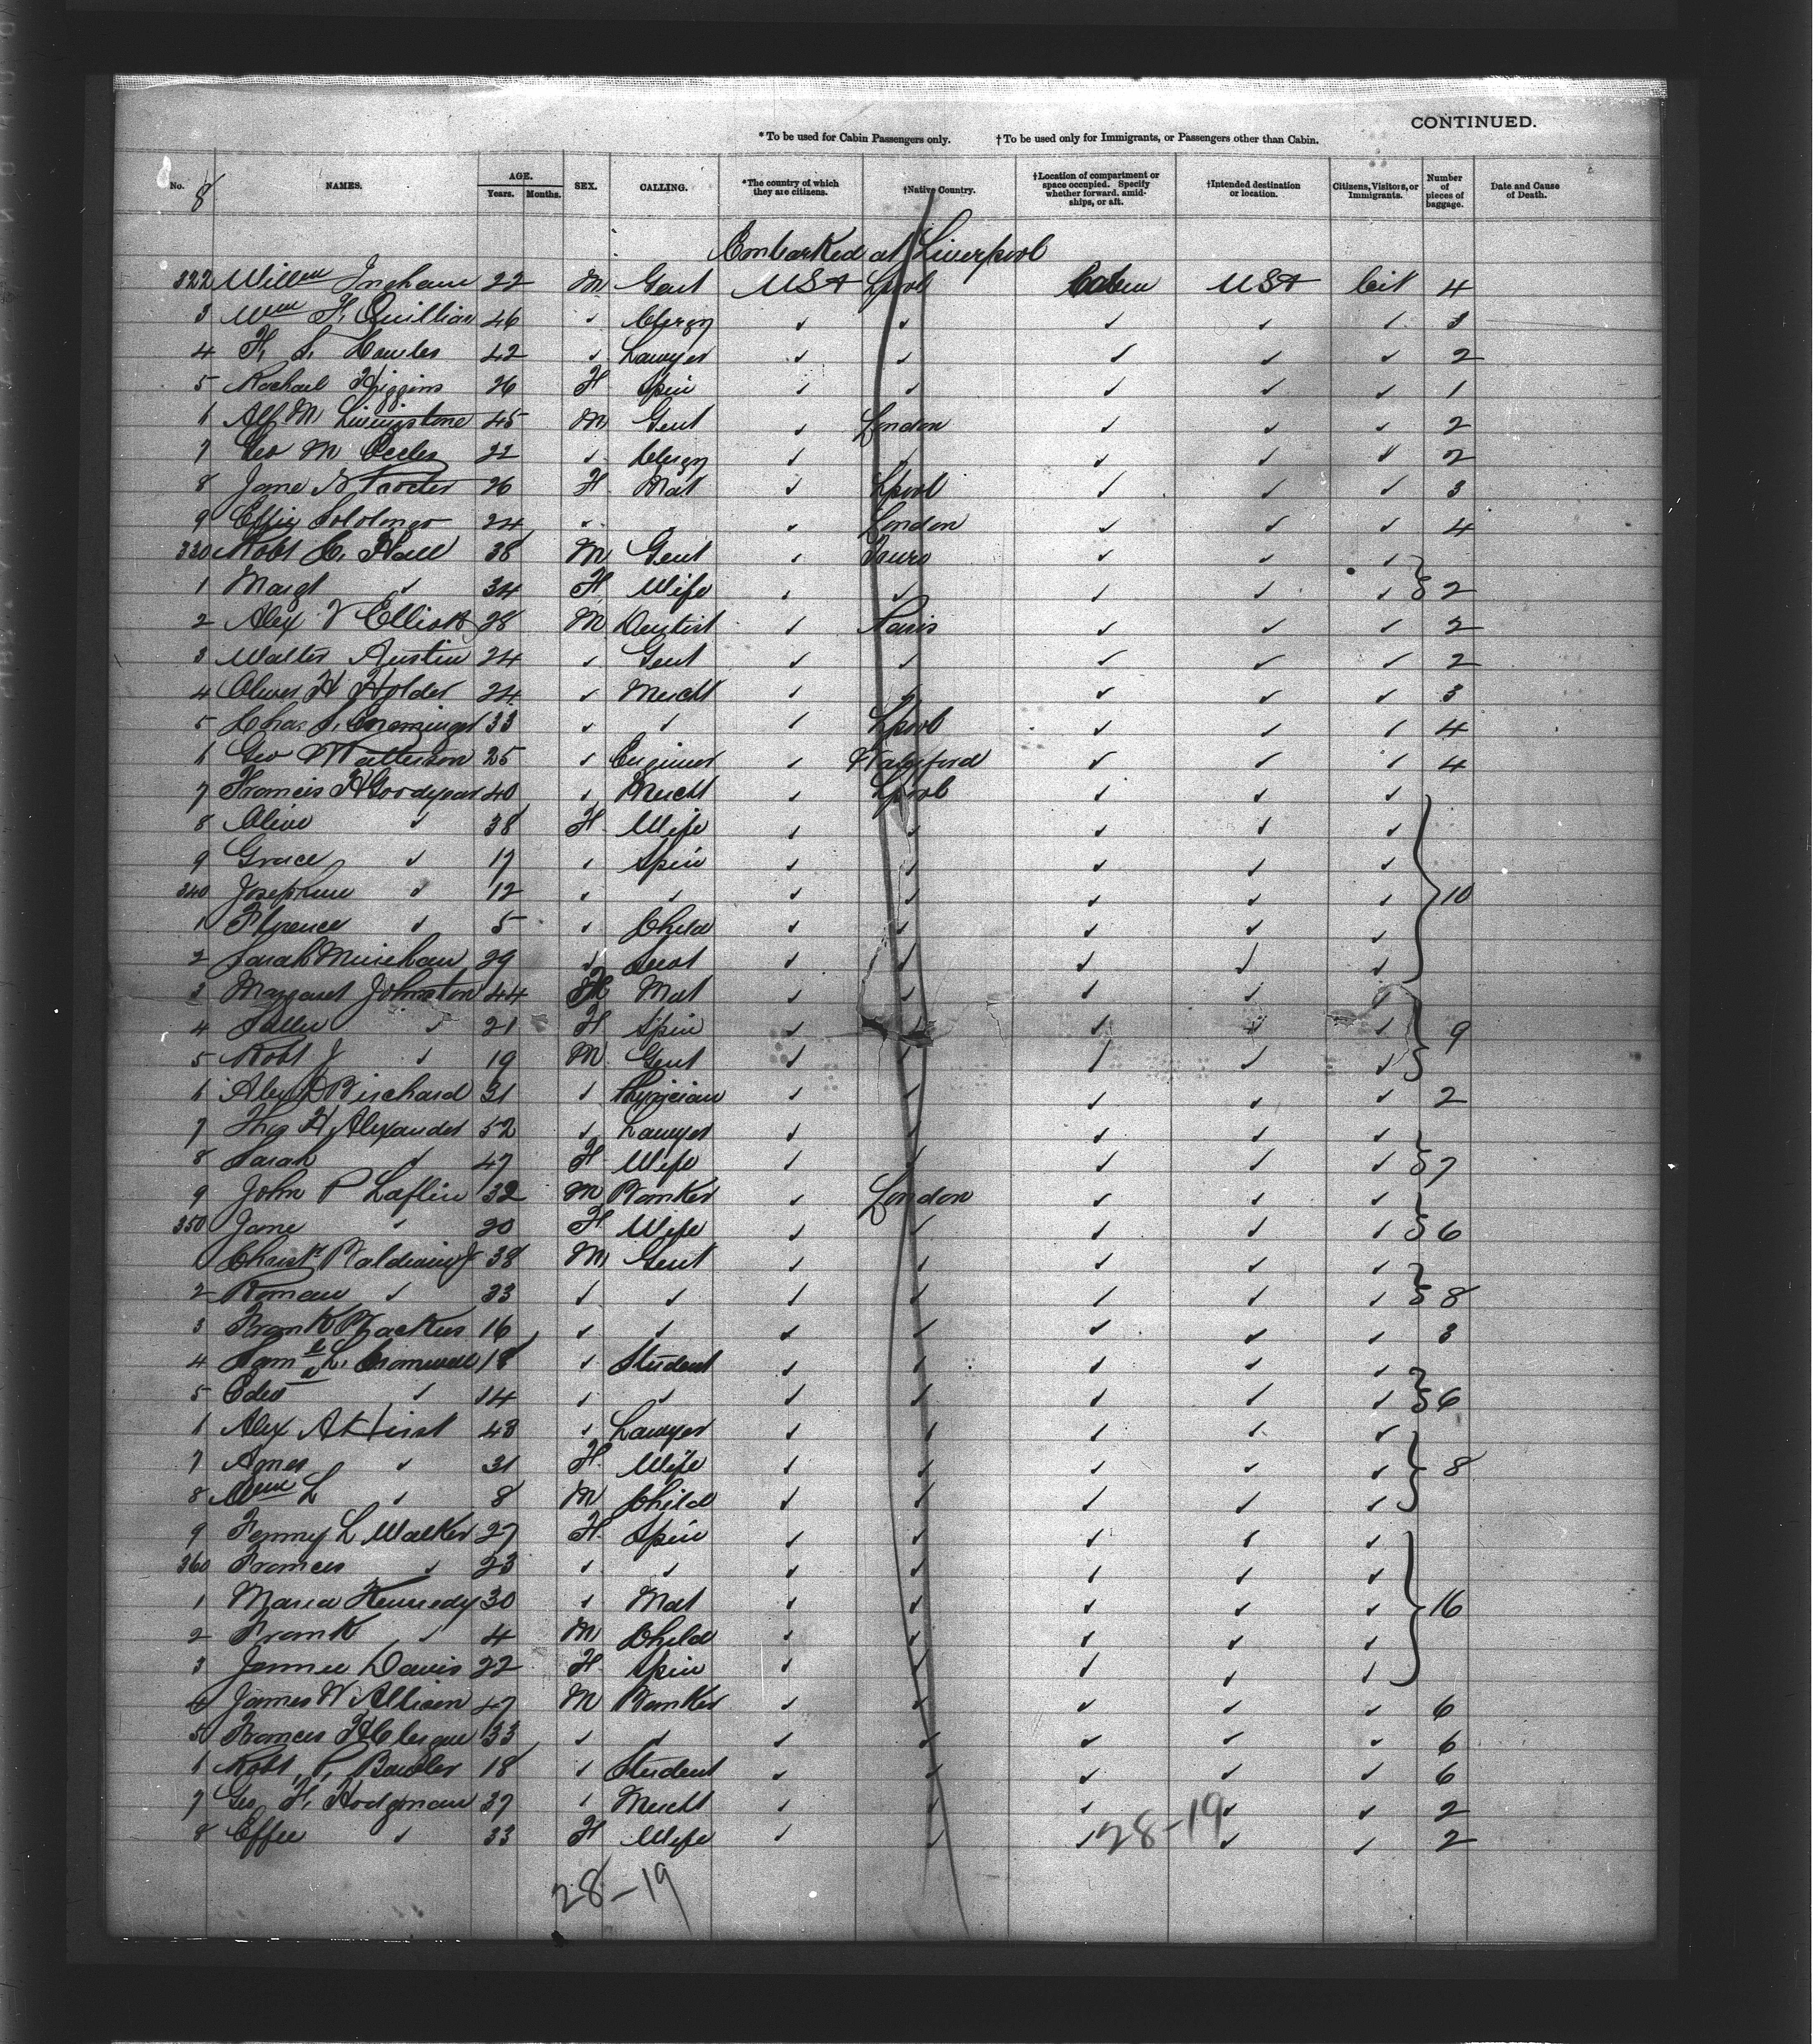 CONTINUED.
* To be used for Cabin Passengers only. † To be used only for Immigrants, or Passengers other than Cabin.
No. 8 NAMES. AGE. Years. Months. SEX. CALLING. *The country of which they are citizens. †Native Country. †Location of compartment or space occupied. Specify whether forward, amidships, or aft. †Intended destination or location. Citizens, Visitors, or Immigrants. Number of pieces of baggage. Date and Cause of Death.
Embarked at Liverpool
322 Willm Ingham 22 M Gent USA Lpool Cabin USA Cit 4
3 Wm F. Quillian 46 ✓ Clergy ✓ ✓ ✓ ✓ ✓ 3
4 F. S. 42 ✓ Lawyer ✓ ✓ ✓ ✓ ✓ 2
5 Rachael Higgins 26 F Spin ✓ ✓ ✓ ✓ ✓ 1
6 Alf M Livingstone 45 M Gent ✓ London ✓ ✓ ✓ 2
7 Geo M Eccles 22 ✓ Clergy ✓ ✓ ✓ ✓ ✓ 2
8 Jane B Procter 26 F Mat ✓ Lpool ✓ ✓ ✓ 3
9 Effie 24 ✓ ✓ London ✓ ✓ ✓ 4
330 Robt C. Hall 38 M Gent ✓ Truro ✓ ✓ ✓
1 Margt ✓ 34 F Wife ✓ ✓ ✓ ✓ ✓ 2
2 Alex V Elliott 28 M Dentist ✓ Paris ✓ ✓ ✓ 2
3 Walter Austin 24 ✓ Gent ✓ ✓ ✓ ✓ ✓ 2
4 Oliver H Holder 24 ✓ Mercht ✓ ✓ ✓ ✓ ✓ 3
5 Chas S. 33 ✓ ✓ ✓ Lpool ✓ ✓ ✓ 4
6 Geo Watterson 25 ✓ Engineer ✓ Waterford ✓ ✓ ✓ 4
7 Francis H Goodyear 40 ✓ Mercht ✓ Lpool ✓ ✓ ✓
8 Olive ✓ 38 F Wife ✓ ✓ ✓ ✓ ✓
9 Grace ✓ 17 ✓ Spin ✓ ✓ ✓ ✓ ✓
340 Josephine ✓ 12 ✓ ✓ ✓ ✓ ✓ ✓ ✓ 10
1 Florence ✓ 5 ✓ Child ✓ ✓ ✓ ✓ ✓
2 Sarah 29 ✓ ✓ ✓ ✓ ✓ ✓
3 Margaret Johnston 44 F Mat ✓ ✓ ✓ ✓ ✓
4 ✓ 21 F Spin ✓ ✓ ✓ ✓ ✓ 9
5 Robt J ✓ 19 M Gent ✓ ✓ ✓ ✓ ✓
6 Alex D Birchard 31 ✓ Physician ✓ ✓ ✓ ✓ ✓ 2
7 Thos H Alexander 52 ✓ Lawyer ✓ ✓ ✓ ✓ ✓
8 Sarah ✓ 47 F Wife ✓ ✓ ✓ ✓ ✓ 7
9 John P Laflin 32 M Banker ✓ London ✓ ✓ ✓
350 Jane ✓ 20 F Wife ✓ ✓ ✓ ✓ ✓ 6
1 Christr 38 M Gent ✓ ✓ ✓ ✓ ✓
2 Roman ✓ 33 ✓ ✓ ✓ ✓ ✓ ✓ ✓ 8
3 Frank 16 ✓ ✓ ✓ ✓ ✓ ✓ ✓ 3
4 Saml L. Cromwell 18 ✓ Student ✓ ✓ ✓ ✓ ✓
5 Edwd ✓ 14 ✓ ✓ ✓ ✓ ✓ ✓ ✓ 6
6 Alex A Hirst 43 ✓ Lawyer ✓ ✓ ✓ ✓ ✓
7 Agnes ✓ 31 F Wife ✓ ✓ ✓ ✓ ✓ 8
8 Wm L ✓ 8 M Child ✓ ✓ ✓ ✓ ✓
9 Fanny L Walker 27 F Spin ✓ ✓ ✓ ✓ ✓
360 Frances ✓ 23 ✓ ✓ ✓ ✓ ✓ ✓ ✓
1 Maria Kennedy 30 ✓ Mat ✓ ✓ ✓ ✓ ✓ 16
2 Frank ✓ 4 M Child ✓ ✓ ✓ ✓ ✓
3 Jannie Davis 22 F Spin ✓ ✓ ✓ ✓ ✓
4 James W Allison 47 M Banker ✓ ✓ ✓ ✓ ✓ 6
5 Frances H Clergue 33 ✓ ✓ ✓ ✓ ✓ ✓ ✓ 6
6 Robt P. Bowler 18 ✓ Student ✓ ✓ ✓ ✓ ✓ 6
7 Geo F. Hodgman 37 ✓ Mercht ✓ ✓ ✓ ✓ ✓ 2
8 Effie ✓ 33 F Wife ✓ ✓ ✓ ✓ ✓ 2
28-19
28-19